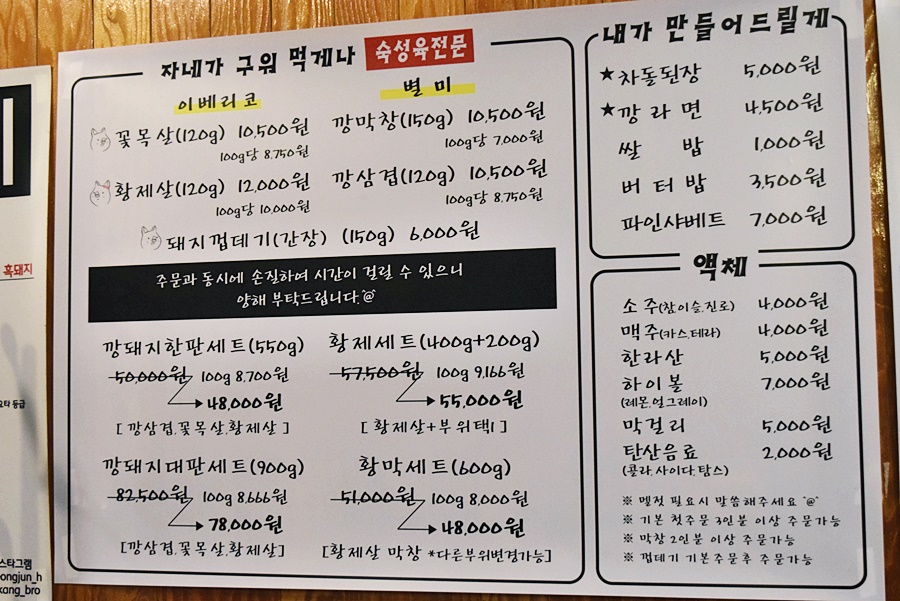 자네가 구워 먹게나 숙성육전문
이베리코
꽃목살(120g) 10,500원
100g당 8,750원
황제살(120g) 12,000원
100g당 10,000원
별미
깡막창(150g) 10,500원
100g당 7,000원
깡삼겹(120g) 10,500원
100g당 8,750원
돼지껍데기(간장) (150g) 6,000원
주문과 동시에 손질하여 시간이 걸릴 수 있으니
양해 부탁드립니다.^@^
깡돼지한판세트(550g)
50,000원 100g 8,700원
48,000원
[ 깡삼겹.꽃목살.황제살 ]
황제세트(400g+200g)
57,500원 100g 9,166원
55,000원
[ 황제살+부위택1 ]
깡돼지대판세트(900g)
82,500원 100g 8,666원
78,000원
[깡삼겹.꽃목살.황제살]
황막세트(600g)
51,000원 100g 8,000원
48,000원
[황제살 막창 *다른부위변경가능]
내가 만들어드릴게
★차돌된장 5,000원
★깡라면 4,500원
쌀밥 1,000원
버터밥 3,500원
파인샤베트 7,000원
액체
소주(참이슬,진로) 4,000원
맥주(카스,테라) 4,000원
한라산 5,000원
하이볼 7,000원
(레몬,얼그레이)
막걸리 5,000원
탄산음료 2,000원
(콜라,사이다,탐스)
※ 멜젓 필요시 말씀해주세요 ^@^
※ 기본 첫주문 3인분 이상 주문가능
※ 막창 2인분 이상 주문가능
※ 껍데기 기본주문후 주문가능
흑돼지
등급
스타그램
ongjun_h
kang_bro